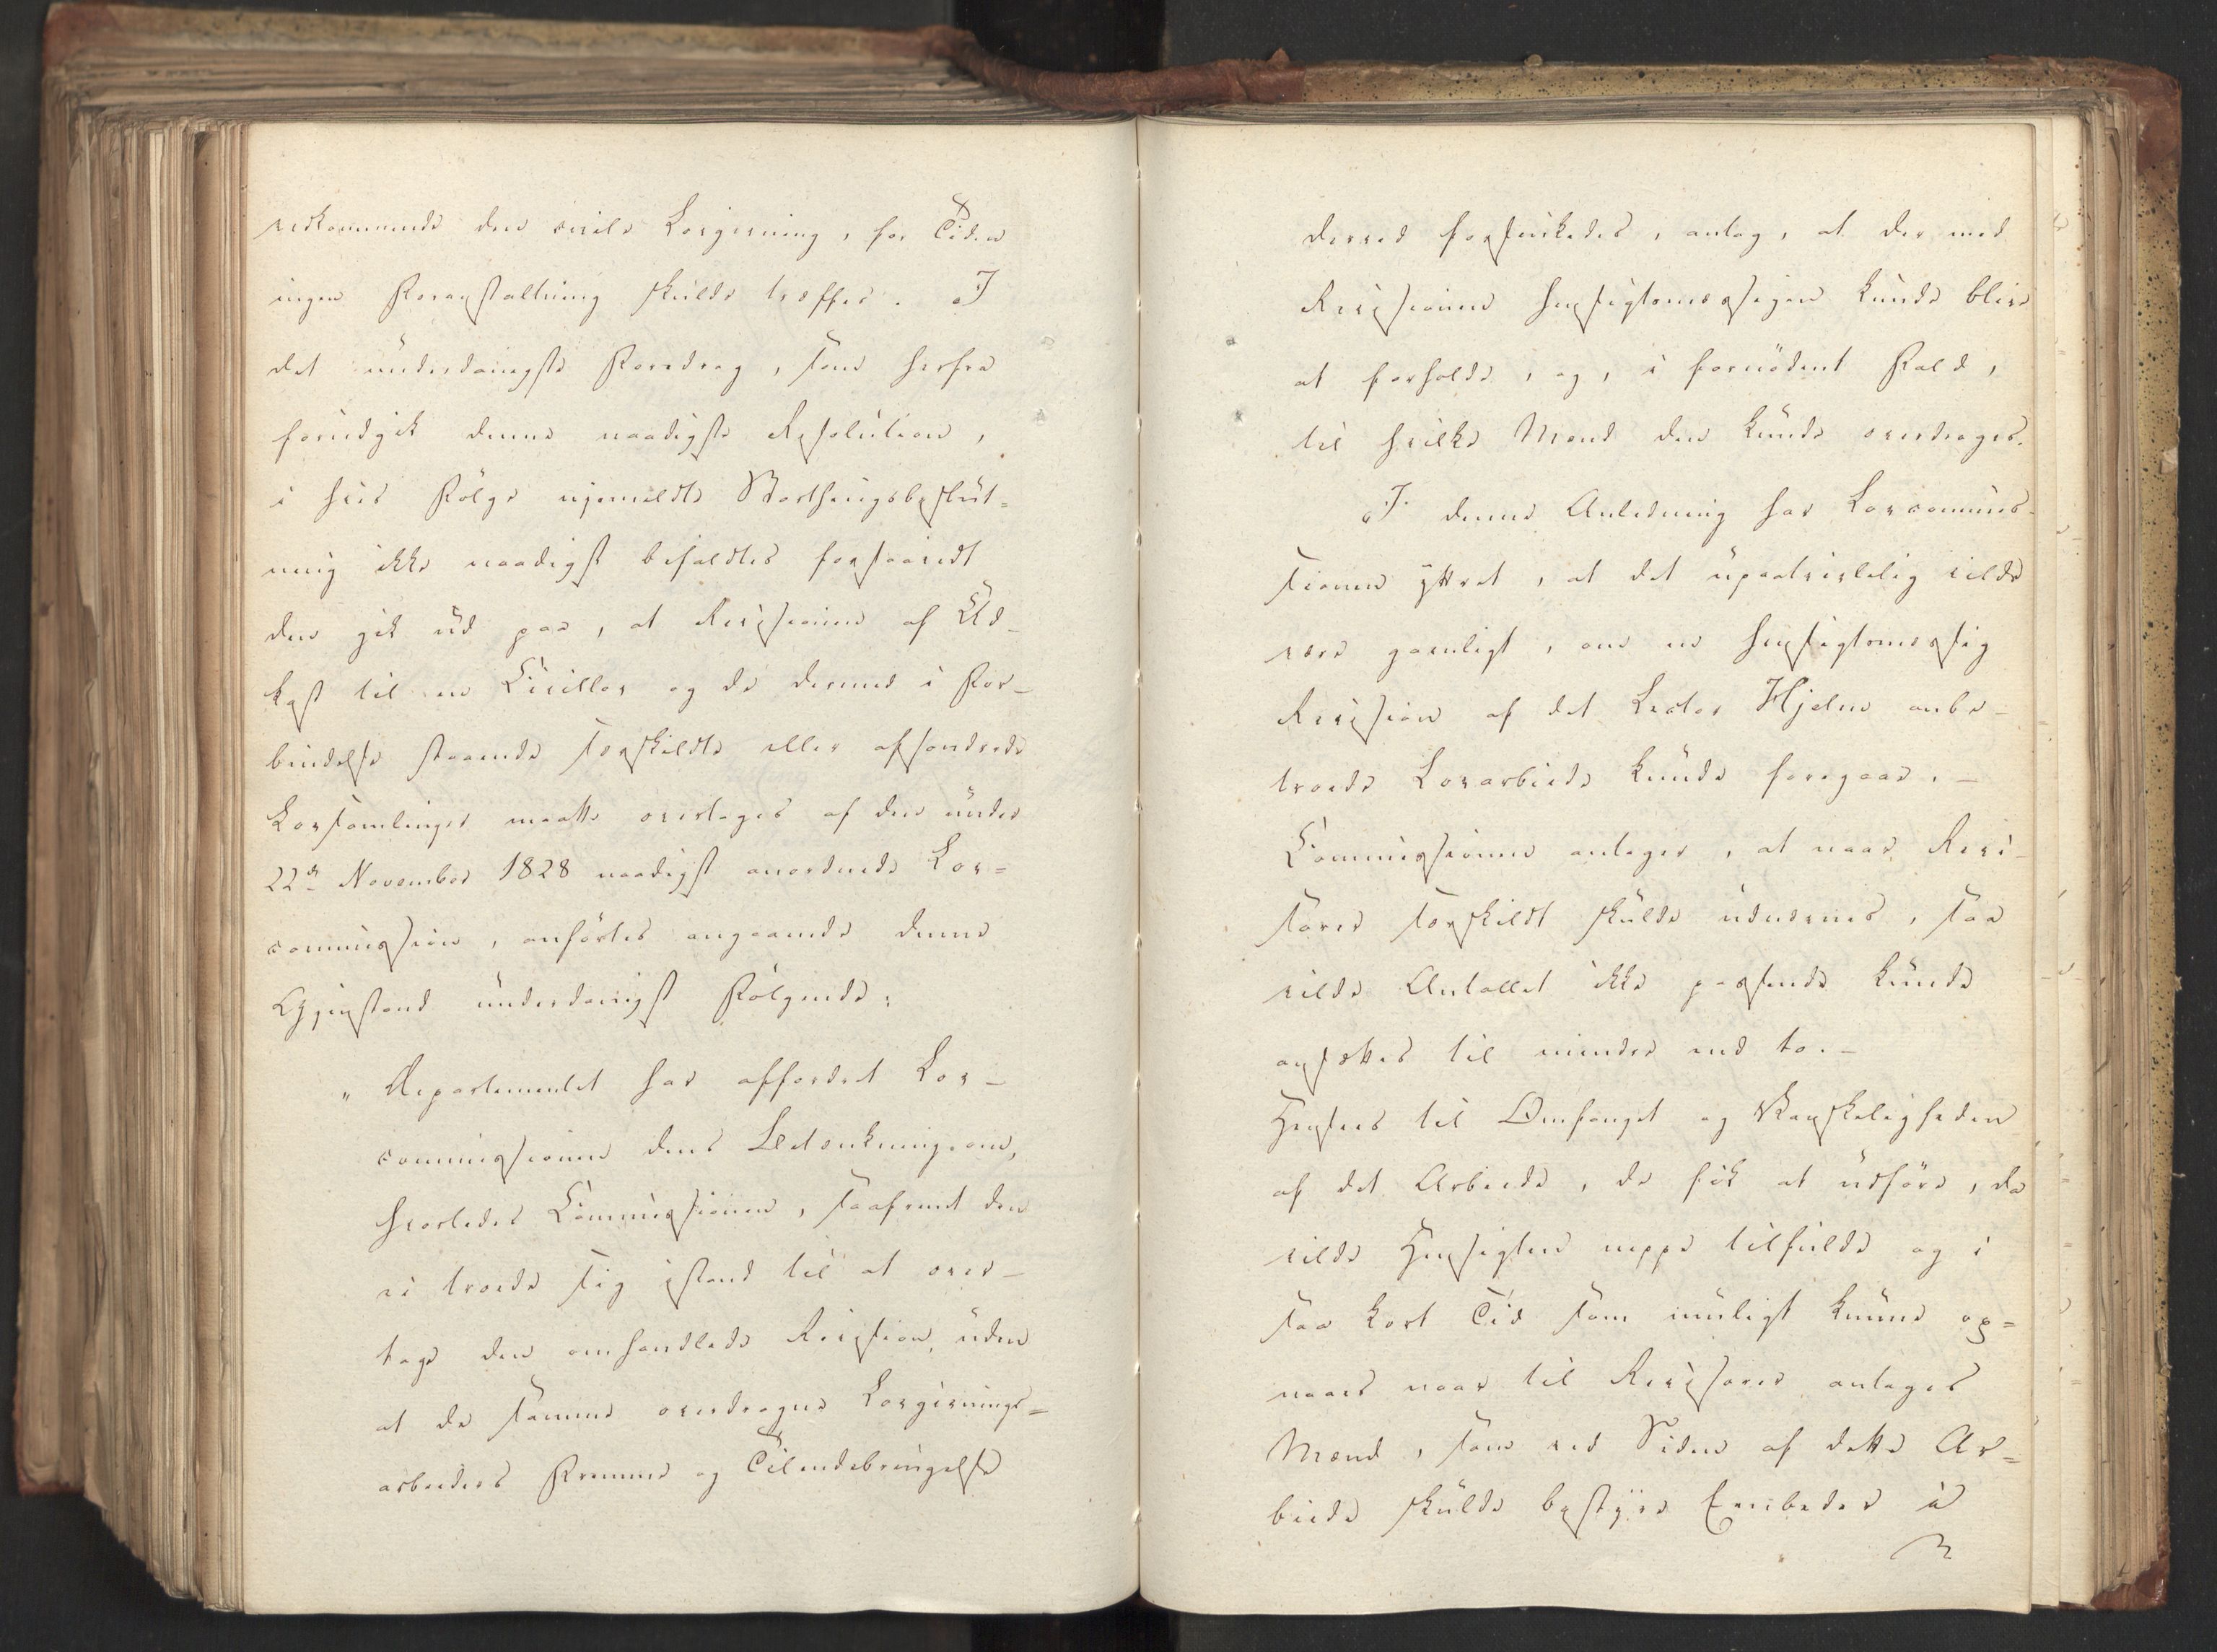 vedkommende den civile Lovgivning, for Tiden
ingen Foranstaltning skulde træffes. I
det underdanigste Foredrag, som herfra
forudgik denne naadigste Resolution,
i hvis Følge ommeldte Storthingsbeslut=
ning ikke naadigst befaldtes forsaavidt
den gik ud paa, at Revisionen af Ud-
kast til en Civillov og de dermed i For-
bindelse staaende særskildte eller afsondrede
Lovsamlinger maatte overtages af den under
22de November 1828 naadigst anordnede Lov=
commission, anførtes angaaende denne
Gjenstand underdanigst Følgende:
"Departementet har affordret Lov-
commissionen dens Betænkning om,
hvorledes Commissionen, saafremt den
ei troede sig istand til at over-
tage den omhandlede Revision, uden
at de samme overdragne Lovgivnings=
arbeiders Fremme og Tilendebringelse
derved forsinkedes, antog, at der med
Revisionen hensigtsmæssigen kunde blive
at forholde, og, i fornødent Fald,
til hvilke Mænd den kunde overdrages.
I denne Anledning har Lovcommis-
sionen yttret, at det upaatvivlelig vilde
være gavnligt, om en hensigtsmæssig
Revision af det Lector Hjelm anbe-
troede Lovarbeide kunde foregaae. -
Commissionen antager, at naar Revi-
sorer særskildt skulde udnævnes, saa
vilde Antallet ikke passende kunde
ansættes til mindre end to. -
Hensees til Omfanget og Vanskeligheden
af det Arbeide, de fik at udføre, da
vilde Hensigten neppe tilfulde og i
saa kort Tid som muligt kunne op=
naaes naar til Revisorer antages
Mænd, som ved Siden af dette Ar=
beide skulde bestyre Embeder i